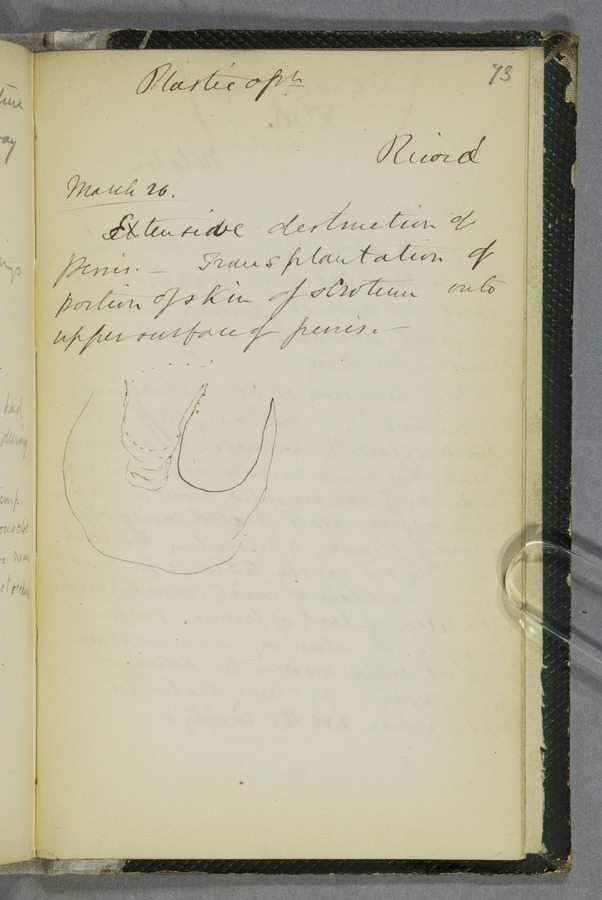 73
Plastic opn
Ricord
March 26.
Extensive destruction of
penis. — Transplantation of
portion of skin of scrotum onto
upper surface of penis. —
had
during